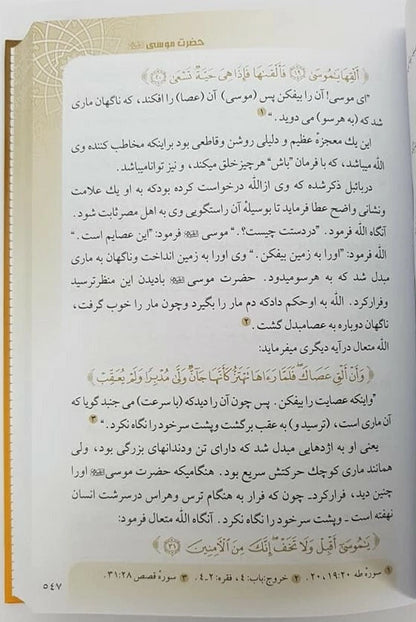 حضرت موسی ﷷ
﴿ أَلْقِهَا يَـٰمُوسَىٰ ﴿١٩﴾ فَأَلْقَىٰهَا فَإِذَا هِىَ حَيَّةٌ تَسْعَىٰ ﴿٢٠﴾ ﴾
"ای موسی! آن را بیفکن پس (موسی) آن (عصا) را افکند، که ناگهان ماری
شد که (به هرسو) می دوید." ۱
این یك معجزۀ عظیم و دلیلی روشن وقاطعی بود براینکه مخاطب کننده وی
الله میباشد، که با فرمان "باش" هرچیز خلق میکند، و نیز توانامیباشد.
دربائبل ذکرشده که وی ازالله درخواست کرده بودکه به او یك علامت
ونشانی واضح عطا فرماید تا بوسیلۀ آن راستگویی وی به اهل مصرثابت شود.
آنگاه الله فرمود: "دردستت چیست؟." موسی فرمود: "این عصایم است."
الله فرمود: "اورا به زمین بیفکن." وی اورا به زمین انداخت وناگهان به ماری
مبدل شد که به هرسومیدود. حضرت موسی بادیدن این منظرترسید
وفرارکرد. الله به اوحکم دادکه دم مار را بگیرد وچون مار را خوب گرفت،
ناگهان دوباره به عصامبدل گشت. ۲
الله متعال درآیه دیگری میفرماید:
﴿ وَأَنْ أَلْقِ عَصَاكَ فَلَمَّا رَءَاهَا تَهْتَزُّ كَأَنَّهَا جَآنٌّ وَلَّىٰ مُدْبِرًا وَلَمْ يُعَقِّبْ ﴾
"واینکه عصایت را بیفکن. پس چون آن را دیدکه (با سرعت) می جنبد گویا که
آن ماری است، (ترسید و) به عقب برگشت وپشت سرخود را نگاه نکرد." ۳
یعنی او به اژدهایی مبدل شد که دارای تن ودندانهای بزرگی بود، ولی
همانند ماری کوچك حرکتش سریع بود. هنگامیکه حضرت موسی اورا
چنین دید، فرارکرد، چون که فرار به هنگام ترس وهراس درسرشت انسان
نهفته است ـ وپشت سرخود را نگاه نکرد. آنگاه الله متعال فرمود:
﴿ يَـٰمُوسَىٰٓ أَقْبِلْ وَلَا تَخَفْ إِنَّكَ مِنَ ٱلْـَٔامِنِينَ ﴿٣١﴾ ﴾
۱ سورۀ طه ۱۹:۲۰، ۲۰. ۲ خروج:باب:۴، فقره:۲ـ۴. ۳ سورۀ قصص ۳۱:۲۸.
۵۴۷